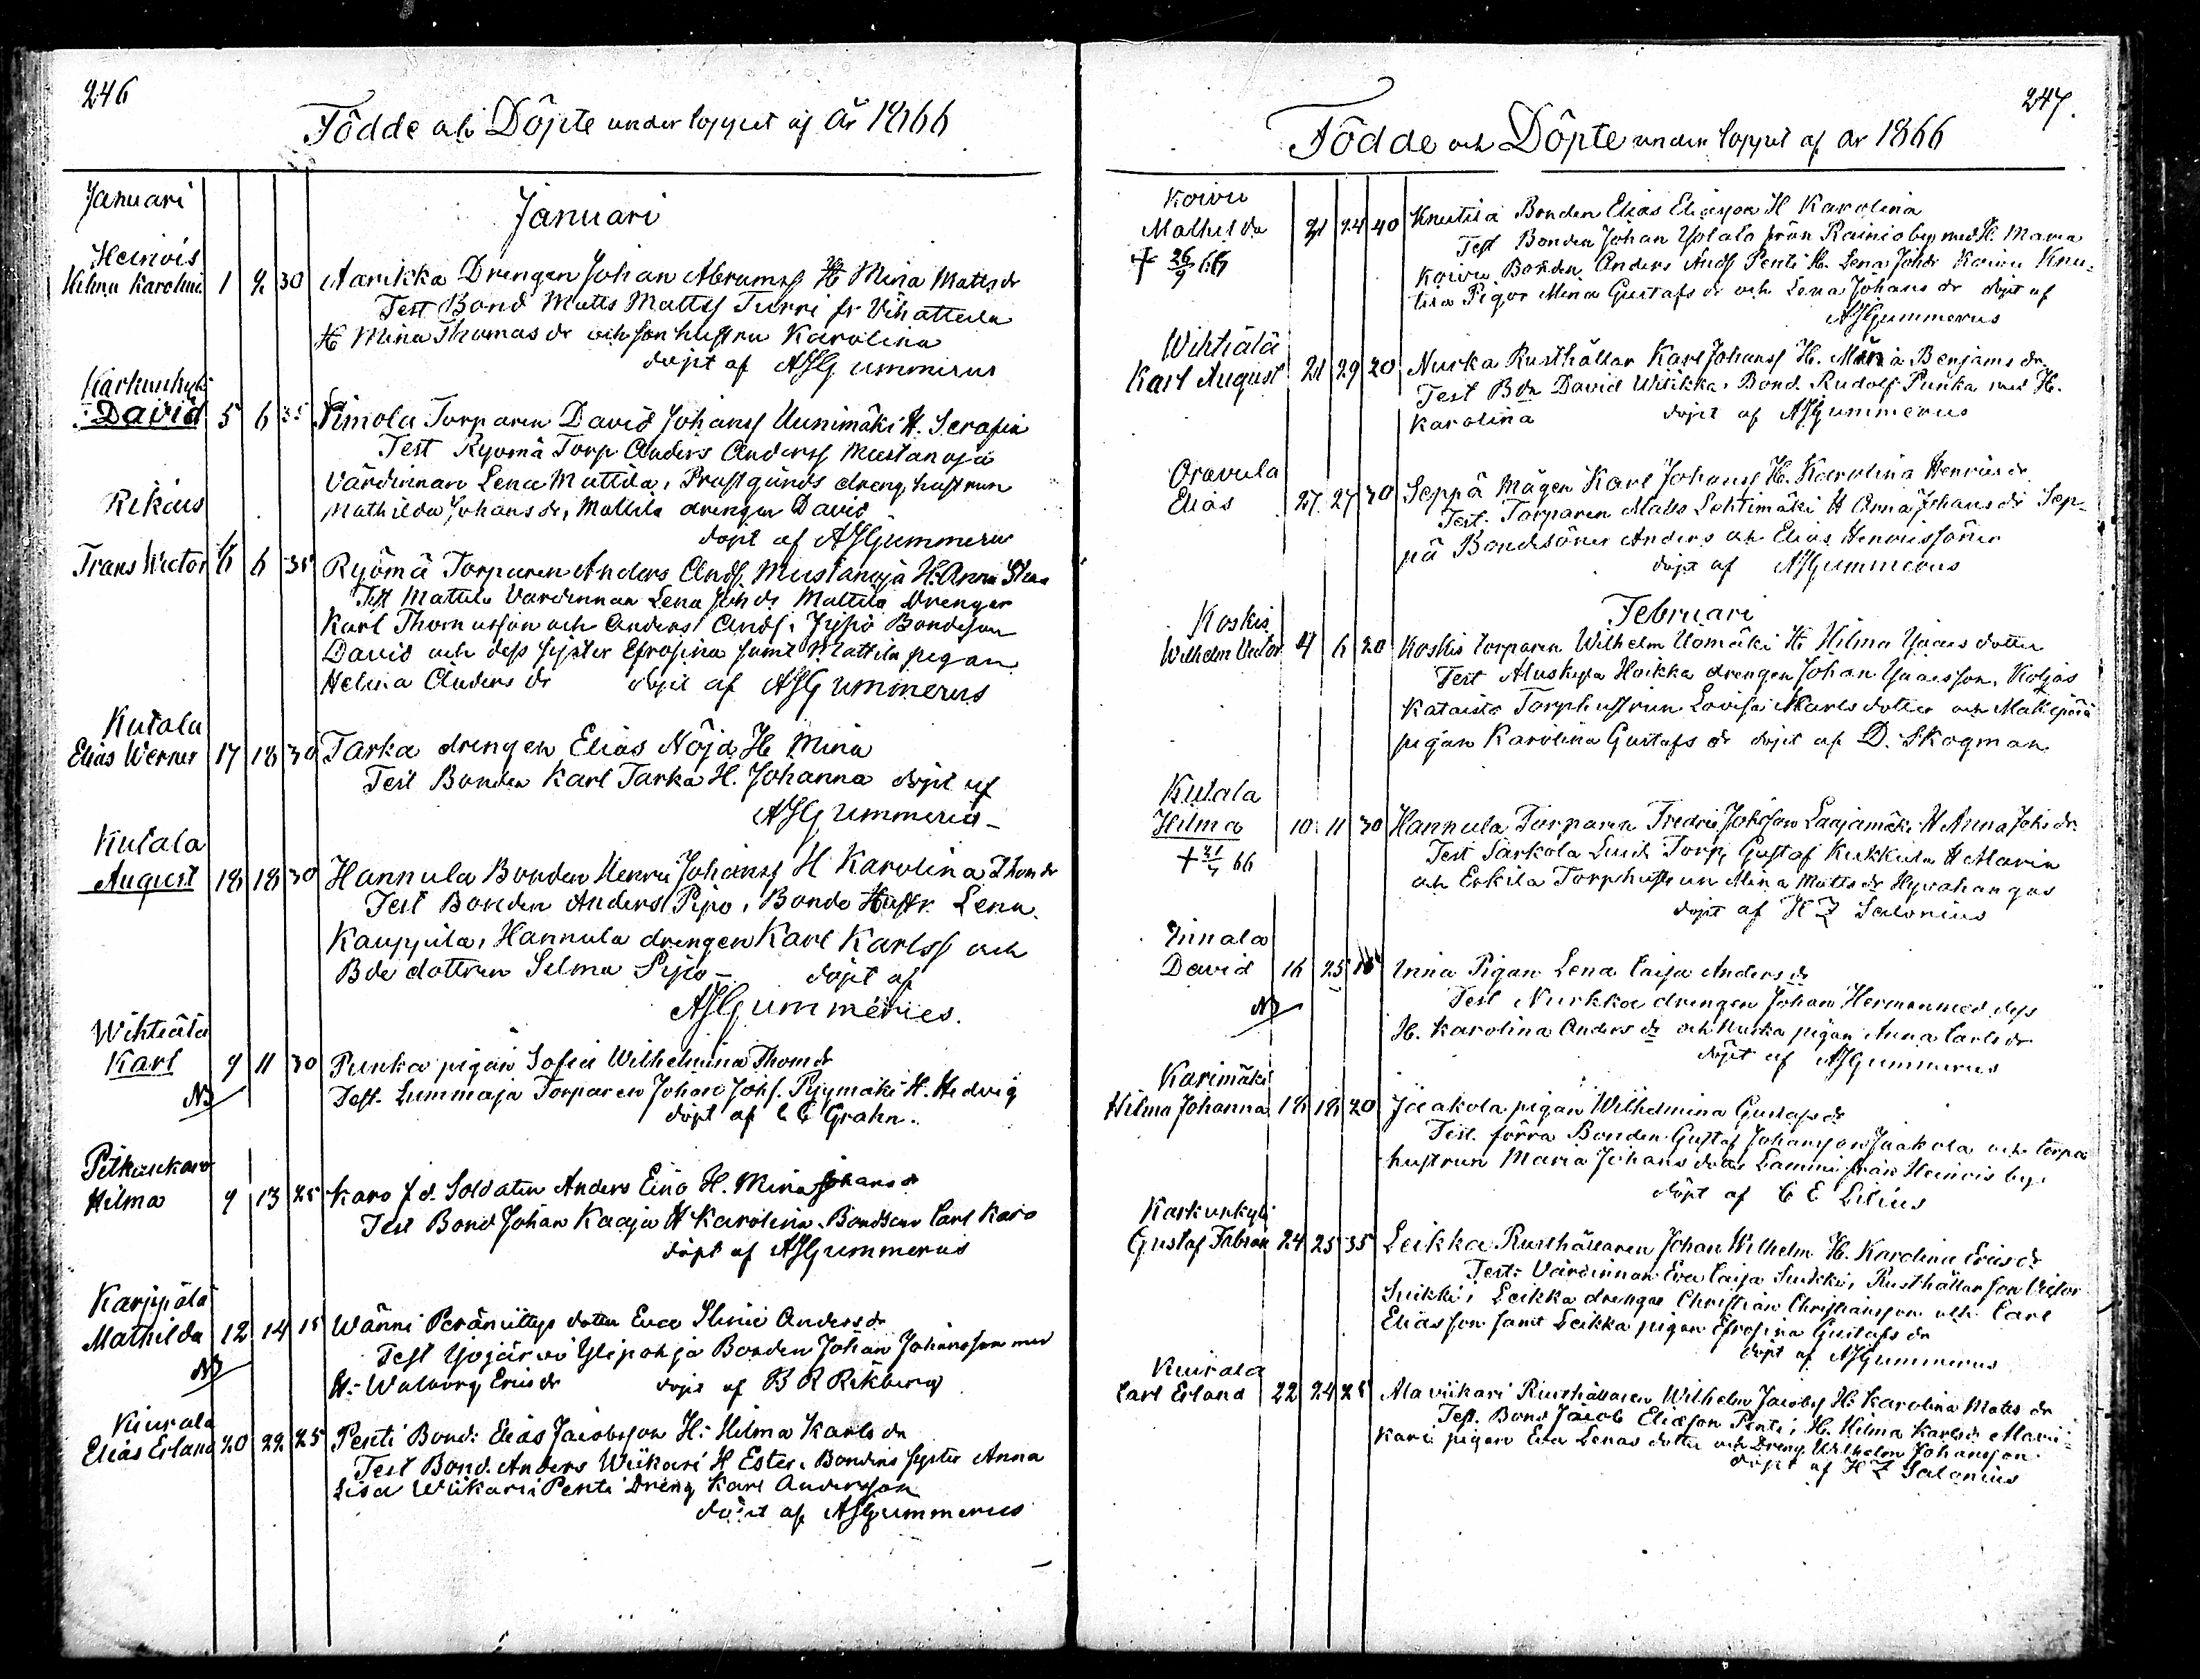 246
Födde och Döpte under loppet af år 1866
Januari
Januari
Heinois
Hilma Karolina 1 2 30 Aarikka Drengen Johan Abramss H Mina Mattsdr
Test Bond Matts Mattss Turri fr Vihatteula
H Mina Thomasdr och sonhustru Karolina
döpt af AJGummerus
Karkunkylä
David 5 6 35 Simola Torparen David Johanss Uunimäki H. Serafia
Test Ryömä Torp Anders Anderss Mustanoja
Värdinnan Lena Mattila, Prustgårds dreng hustrun
Mathilda Johansdr, Mattila drengen David
döpt af AJGummerus
Rikais
Frans Victor 6 35 Ryömä Torparen Anders Andss Mustanoja H. Anna
Test Mattila Vardinnan Lena Johdr Mattila Drengar
Karl Thomasson och Anders Andss, Bondeson
David och dess syster Efrosina samt Mattila pigan
Helena Andersdr döpt af AJGummerus
Kutala
Elias Werner 17 18 30 Tarka drengen Elias Nöjd H Mina
Test Bonden Karl Tarka H. Johanna döpt af
AJGummerus
Kutala
August 18 18 30 Hannula Bonden Henric Johanss H Karolina Thomdr
Test Bonden Anders Pipo, Bonde Hustr. Lena
Kauppila, Hannula drengen Karl Karlss och
Bde dottren Selma Pipo – döpt af
AJGummerus.
Wihtiälä
Karl 9 11 30 Punka pigan Sofia Wilhelmina Thomdr
NB
Test. Lummaja Torparen Johan Johs. Pyymäki H. Hedvig
döpt af C E Grahn.
Pitkäukaro
Hilma 9 13 25 Karo f d. Soldaten Anders Eino H. Mina Johansdr
Test Bond Johan Kaaja H Karolina, Bondson Carl Karo
döpt af AJGummerus
Karppälä
Mathilda 12 14 15 Wänni Peräniittys dotter Eva Andersdr
NB
Test Yöjärvi Ylipohja Bonden Johan Johansson med
H: Walborg Ericsdr döpt af B R Rekberg
Kiurala
Elias Erland 20 22 25 Penti Bond: Elias Jacobsson H: Hilma Karlsdr
Test Bond. Anders Wiikari H Ester, Bondens syster Anna
Lisa Wiikari, Penti Dreng Karl Andersson
döpt af AJGummerus
247.
Födde och Döpte under loppet af år 1866
Koivu
Mathilda 21 24 40 Knutila Bonden Elias Eliasson H Karolina
+ 26/9 66
Test Bonden Johan Yötalo från Rainio by med H. Maria
Koivu Bonden Anders Andss Penti H. Lena Johdr Koivu Knu-
tila Pigor Mina Gustafsdr och Lena Johansdr döpt af
AJGummerus
Wihtiälä
Karl August 21 29 20 Nurka Rusthållar Karl Johanss H. Maria Benjamsdr
Test Bdn David Wilikka, Bond. Rudolf Punka med H.
Karolina döpt af AJGummerus
Oravula
Elias 27 27 30 Seppä Mågen Karl Johanss H. Karolina Henricsdr
Test. Torparen Matts Lehtimäki H Anna Johansdr Sep-
pä Bondesöner Anders och Elias Henricssöner
döpt af AJGummerus
Februari
Koskis
Wilhelm Victor 4 6 20 Koskis torparen Wilhelm Uomäki H Hilma dotter
Test Haikka drengen Johan Koljas
Kataisto Torphustrun Lovisa Karls dotter och Mattipärä
pigan Karolina Gustafsdr döpt af D. Skogman
Kutala
Hilma 10 11 30 Hannula Torparen Fredric Johsson Laajamäki H Anna Johsdr.
+ 21/4 66
Test Sarkola Torp, Gustaf Kukkula H Maria
och Erkila Torphustrun Mina Mattsdr
döpt af H Z Salonius
Innala
David 16 25 Inna Pigan Lena Caisa Andersdr
NB
Test Nurkka drengen Johan Herman med dess
H. Karolina Andersdr och Nurka pigan Anna Carlsdr
döpt af AJGummerus
Karimäki
Hilma Johanna 18 18 20 Jaakola pigan Wilhelmina Gustafsdr
Test. förra Bonden Gustaf Johansson Jaakola och torpa
hustrun Maria Johansdotter Lammi från Heinois by.
döpt af C E Lilius
Karkunkylä
Gustaf Fabian 24 25 35 Leikka Rusthållaren Johan Wilhelm H. Karolina Ericsdr
Test: Värdinnan Eva Caisa Suikki, Rusthållar son Victor
Suikki, Leikka drengar Christian Christiansson och Carl
Eliasson samt Leikka pigan Efrosina Gustafsdr
döpt af AJGummerus
Kiurala
Carl Erland 22 24 25 Alaviikari Rusthållaren Wilhelm Jacobss H: Karolina Mattsdr
Test. Bond Jacob Eliasson Penti, H: Hilma Karlsdr Alavii-
kari pigan Eva Lenas dotter och Dreng Wilhelm Johansson.
döpt af H Z Salonius